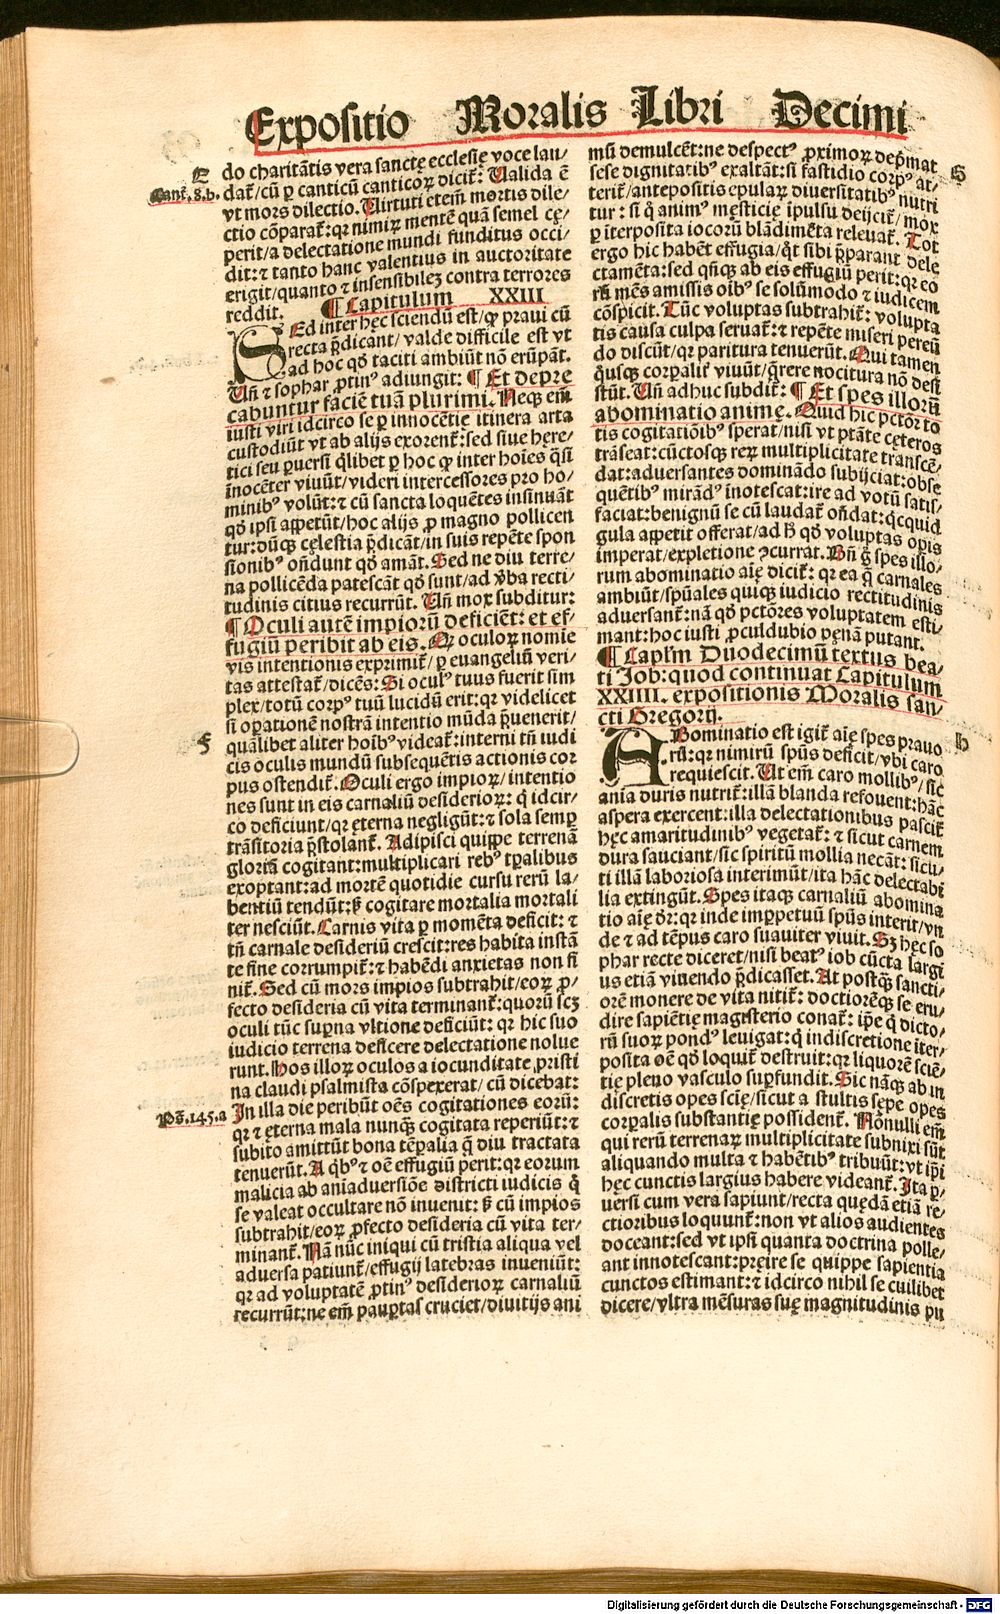 Expositio Moralis Libri Decimi
E
Cant. 8.b.
do charitãtis vera sanctę ecclesię voce lau/
dat̃/cũ ꝑ canticũ canticoꝝ dicit̃: Ualida ẽ
vt mors dilectio. Uirtuti eteñ mortis dile/
ctio cõparat̃: qꝛ nimiꝝ mentẽ quã semel cę/
perit/a delectatione mundi funditus occi/
dit: ⁊ tanto hanc valentius in auctoritate
erigit/quanto ⁊ insensibileꝫ contra terrores
reddit. ¶ Capitulum XXIII
SEd inter hęc sciendũ est/ꝙ praui cũ
recta p̃dicant/ valde difficile est vt
ad hoc qď taciti ambiũt nõ erũpãt.
Uñ ⁊ sophar ꝓtinꝰ adiungit: ¶ Et depre
cabuntur faciẽ tuã plurimi. Neqꝫ em̃
iusti viri idcirco se ꝑ innocẽtię itinera arta
custodiũt vt ab alijs exorent̃: sed siue hęre/
tici seu ꝑuersi q̃libet ꝑ hoc ꝙ inter hoĩes q̃si
ĩnocẽter viuũt/videri intercessores pro ho/
minibꝰ volũt: ⁊ cũ sancta loquẽtes insinuãt
qď ipsi appetũt/hoc alijs ꝓ magno pollicen
tur: dũqꝫ cęlestia p̃dicãt/in suis repẽte spon
sionibꝰ oñdunt qď amãt. Sed ne diu terre/
na pollicẽda patescãt qď sunt/ad ṽba recti/
tudinis citius recurrũt. Uñ mox subditur:
¶ Oculi autẽ impioꝝ deficiẽt: et ef/
fugiũ peribit ab eis. Qꝛ oculoꝝ nomie
vis intentionis exprimit̃/ꝑ euangeliũ veri/
tas attestat̃/dicẽs: Si oculꝰ tuus fuerit sim
plex/totũ corpꝰ tuũ lucidũ erit: qꝛ videlicet
si oꝑationẽ nostrã intentio mũda p̃uenerit/
F
quãlibet aliter hoĩbꝰ videat̃: interni tñ iudi
cis oculis mundũ subsequẽtis actionis cor
pus ostendit̃. Oculi ergo impioꝝ/ intentio
nes sunt in eis carnaliũ desiderioꝝ: q̇ idcir/
co deficiunt/qꝛ ęterna negligũt: ⁊ sola semꝑ
trãsitoria p̃stolant̃. Adipisci quippe terrenã
gloriã cogitant: multiplicari rebꝰ tꝑalibus
exoptant: ad mortẽ quotidie cursu rerũ la/
bentiũ tendũt: ß cogitare mortalia mortali
ter nesciũt. Carnis vita ꝑ momẽta deficit: ⁊
tñ carnale desideriũ crescit: res habita instã
te fine corrumpit̃: ⁊ habẽdi anxietas non fi
nit̃. Sed cũ mors impios subtrahit/eoꝝ ꝓ/
fecto desideria cũ vita terminant̃: quorũ scꝫ
oculi tũc suꝑna vltione deficiũt: qꝛ hic suo
iudicio terrena deficere delectatione nolue
runt. Hos illoꝝ oculos a iocunditate pristi
na claudi psalmista cõspexerat/ cũ dicebat:
Ps̃.145.a
In illa die peribũt oẽs cogitationes eorũ:
qꝛ ⁊ ęterna mala nunqꝫ cogitata reperiũt: ⁊
subito amittũt bona tẽpalia q̃ diu tractata
tenuerũt. A q̇bꝰ ⁊ oẽ effugiũ perit: qꝛ eorum
malicia ab aniaduersiõe districti iudicis q̇
se valeat occultare nõ inuenit: ß cũ impios
subtrahit/eoꝝ ꝓfecto desideria cũ vita ter/
minant̃. Nã nũc iniqui cũ tristia aliqua vel
aduersa patiunt̃/effugij latebras inueniũt:
qꝛ ad voluptatẽ ꝓtinꝰ desiderioꝝ carnaliũ
recurrũt: ne em̃ pauꝑtas cruciet/diuitijs ani
mũ demulcẽt: ne despectꝰ ꝓximoꝝ dep̃mat
G
sese dignitatibꝰ exaltãt: si fastidio corpꝰ at/
terit̃/antepositis epulaꝝ diuersitatibꝰ nutri
tur: si q̇ animꝰ męsticię ĩpulsu deijcit̃/ mox
ꝑ ĩterposita iocorũ blãdimẽta releuat̃. Tot
ergo hic habẽt effugia/q̇t sibi p̃parant dele
ctamẽta: sed qñqꝫ ab eis effugiũ perit: qꝛ eo
rũ mẽs amissis oĩbꝰ se solũmodo ⁊ iudicem
cõspicit. Tũc voluptas subtrahit̃: volupta
tis causa culpa seruat̃: ⁊ repẽte miseri pereũ
do discũt/qꝛ paritura tenuerũt. Qui tamen
q̃usqꝫ corpalit̃ viuũt/q̃rere nocitura nõ desi
stũt. Uñ adhuc subdit̃: ¶ Et spes illorũ
abominatio animę. Quid hic pctõr to
tis cogitatiõibꝰ sperat/nisi vt ptãte cęteros
trãseat: cũctosqꝫ reꝝ multiplicitate transcẽ/
dat: aduersantes dominãdo subijciat: obse
quẽtibꝰ mirãdꝰ ĩnotescat: ire ad votũ satis/
faciat: benignũ se cũ laudat̃ oñdat: q̇cquid
gula appetit offerat/ad ħ qď voluptas opis
imperat/expletione ɔcurrat. Bñ g̊ spes illo/
rum abominatio aię dicit̃: qꝛ ea q̃ carnales
ambiũt/spũales quiqꝫ iudicio rectitudinis
aduersant̃: nã qď pctõres voluptatem esti/
mant: hoc iusti ꝓculdubio pęnã putant.
¶ Capl̃m Duodecimũ textus bea/
ti Job: quod continuat Capitulum
XXIIII. expositionis Moralis san/
cti Gregorij.
H
ABominatio est igit̃ aię spes prauo
rũ: qꝛ nimirũ spũs deficit/vbi caro
requiescit. Ut em̃ caro mollibꝰ/ sic
ania duris nutrit̃: illã blanda refouent: hãc
aspera exercent: illa delectationibus pascit̃
hęc amaritudinibꝰ vegetat̃: ⁊ sicut carnem
dura sauciant/sic spiritũ mollia necãt: sicu/
ti illã laboriosa interimũt/ita hãc delectabi
lia extingũt. Spes itaqꝫ carnaliũ abomina
tio aię ďr: qꝛ inde imꝑpetuũ spũs interit/vn
de ⁊ ad tẽpus caro suauiter viuit. Sꝫ hęc so
phar recte diceret/nisi beatꝰ iob cũcta largi
us etiã viuendo p̃dicasset. At postqꝫ sancti/
orẽ monere de vita nitit̃: doctiorẽqꝫ se eru/
dire sapiẽtię magisterio conat̃: ip̃e q̃ dicto/
rũ suoꝝ pondꝰ leuigat: q̇ indiscretione ĩter/
posita oẽ qď loquit̃ destruit: qꝛ liquorẽ sciẽ/
tię pleno vasculo suꝑfundit. Sic nãqꝫ ab in
discretis opes scię/sicut a stultis sępe opes
corꝑalis substantię possident̃. Nõnulli em̃
qui rerũ terrenaꝝ multiplicitate subnixi sũt
aliquando multa ⁊ habẽtibꝰ tribuũt: vt ip̃i
hęc cunctis largius habere videant̃. Ita ꝑ/
uersi cum vera sapiunt/recta quędã etiã re/
ctioribus loquunt̃: non vt alios audientes
doceant: sed vt ipsi quanta doctrina polle/
ant innotescant: pręire se quippe sapientia
cunctos estimant: ⁊ idcirco nihil se cuilibet
dicere/vltra mẽsuras suę magnitudinis pu
Digitalisierung gefördert durch die Deutsche Forschungsgemeinschaft - DFG